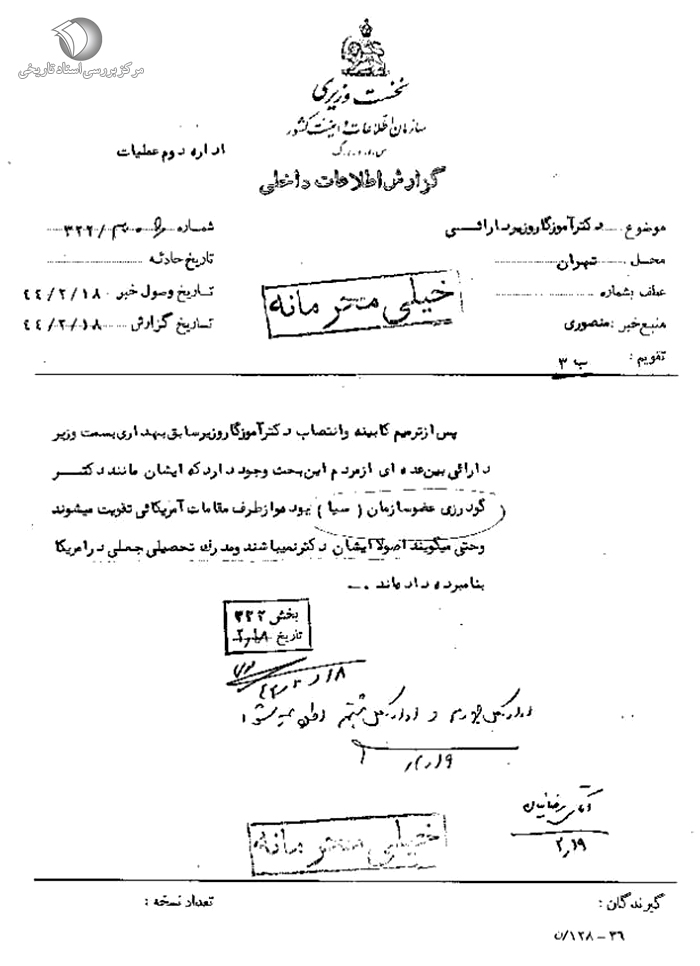 مرکز بررسی اسناد تاریخی
نخست وزیری
سازمان اطلاعات و امنیت کشور
س.ا.و.ا.ک
اداره دوم عملیات
گزارش اطلاعات داخلی
موضوع دکتر آموزگار وزیر دارائی
شماره ۳۲۲/
محل تهران
تاریخ حادثه
عطف بشماره
تاریخ وصول خبر ۴۴/۲/۱۸
منبع خبر : منصوری
تاریخ گزارش ۴۴/۲/۱۸
تقویم : ب ۳
خیلی محرمانه
پس از ترمیم کابینه و انتصاب دکتر آموزگار وزیر سابق بهداری بسمت وزیر
دارائی بین عده ای از مردم این بحث وجود دارد که ایشان مانند دکتر
گودرزی عضو سازمان ( سیا ) بوده و از طرف مقامات آمریکائی تقویت میشوند
و حتی میگویند اصولا ایشان دکتر نمیباشند و مدرک تحصیلی جعلی در امریکا
بنامبرده داده‌اند .ـ
بخش ۳۲۲
تاریخ ۲٫۱۸
۱۸
۱۹
آقای رضائیان
۲٫۱۹
خیلی محرمانه
گیرندگان :
تعداد نسخه :
۳۶ - ۱۲۸/ن